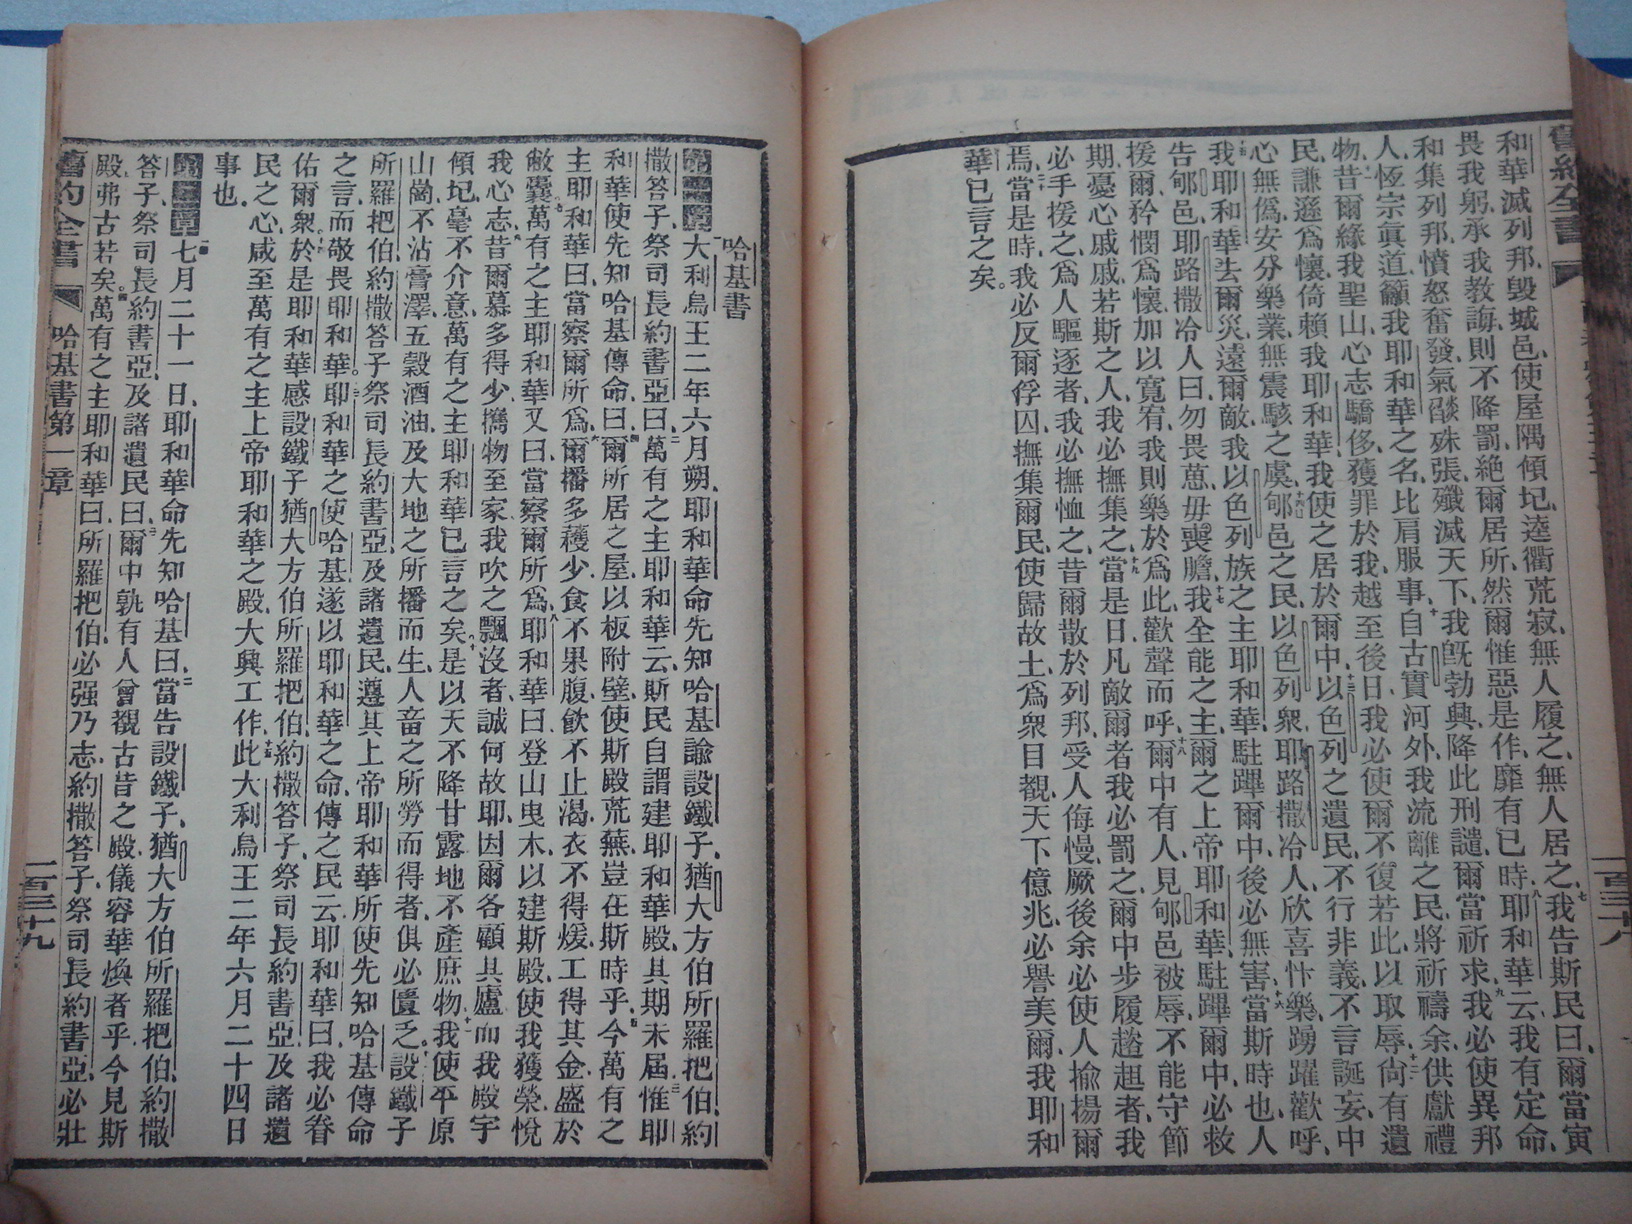 舊約全書
和華滅列邦、毀城邑、使屋隅傾圮、逵衢荒寂、無人履之、無人居之、七我告斯民曰、爾當寅
畏我、躬承我教誨、則不降罰、絕爾居所、然爾惟惡是作、靡有已時、八耶和華云、我有定命、
和集列邦、憤怒奮發、氣燄殊張、殲滅天下、我旣勃興、降此刑譴、爾當祈求我、九必使異邦
人、恆宗眞道、籲我耶和華之名、比肩服事、十自古實河外、我流離之民、將祈禱余、供獻禮
物、十一昔爾緣我聖山、心志驕侈、獲罪於我、越至後日、我必使爾不復若此、以取辱、十二尙有遺
民、謙遜爲懷、倚賴我耶和華、我使之居於爾中、十三以色列之遺民、不行非義、不言誕妄、中
心無僞、安分樂業、無震駭之虞、十四郇邑之民、以色列衆、耶路撒冷人、欣喜忭樂、踴躍歡呼、
十五我耶和華去爾災、遠爾敵、我以色列族之主耶和華、駐蹕爾中、後必無害、十六當斯時也、人
告郇邑、耶路撒冷人曰、勿畏葸、毋喪膽、十七我全能之主、爾之上帝耶和華、駐蹕爾中、必救
援爾、矜憫爲懷、加以寬宥、我則樂於爲此、歡聲而呼、十八爾中有人、見郇邑被辱、不能守節
期、憂心戚戚、若斯之人、我必撫集之、十九當是日、凡敵爾者、我必罰之、爾中步履趦趄者、我
必手援之、爲人驅逐者、我必撫恤之、昔爾散於列邦、受人侮慢、厥後余必使人揄揚爾
焉、二十當是時、我必反爾俘囚、撫集爾民、使歸故土、爲衆目覩、天下億兆、必譽美爾、我耶和
華已言之矣。
一百三十八
哈基書
第一章一大利烏王二年六月朔、耶和華命先知哈基諭設鐵子、猶大方伯所羅把伯、約
撒答子、祭司長約書亞曰、二萬有之主耶和華云、斯民自謂建耶和華殿、其期未屆、三惟耶
和華使先知哈基傳命曰、四爾所居之屋、以板附壁、使斯殿荒蕪、豈在斯時乎、五今萬有之
主耶和華曰、當察爾所爲、六爾播多穫少、食不果腹、飲不止渴、衣不得煖、工得其金、盛於
敝囊、七萬有之主耶和華又曰、當察爾所爲、八耶和華曰、登山曳木、以建斯殿、使我獲榮、悅
我心志、九昔爾慕多得少、攜物至家、我吹之飄沒者、誠何故耶、因爾各顧其廬、而我殿宇
傾圮、毫不介意、萬有之主耶和華已言之矣、十是以天不降甘露、地不產庶物、十一我使平原
山崗、不沾膏澤、五穀酒油、及大地之所播而生、人畜之所勞而得者、俱必匱乏、十二設鐵子
所羅把伯、約撒答子、祭司長約書亞、及諸遺民、遵其上帝耶和華所使先知哈基傳命
之言、而敬畏耶和華。十三耶和華之使哈基、遂以耶和華之命、傳之民云、耶和華曰、我必眷
佑爾衆、十四於是耶和華感設鐵子、猶大方伯所羅把伯、約撒答子、祭司長約書亞、及諸遺
民之心、咸至萬有之主上帝耶和華之殿、大興工作、十五此大利烏王二年六月二十四日
事也。
第二章一七月二十一日、耶和華命先知哈基曰、二當告設鐵子、猶大方伯所羅把伯、約撒
答子、祭司長約書亞、及諸遺民曰、三爾中孰有人曾覩古昔之殿、儀容華煥者乎、今見斯
殿、弗古若矣。四萬有之主耶和華曰、所羅把伯、必强乃志、約撒答子、祭司長約書亞、必壯
舊約全書
哈基書第一章
一百三十九